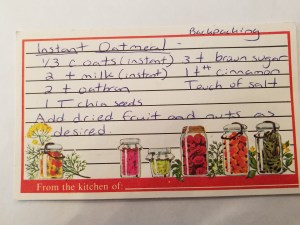 Backpacking
Instant Oatmeal -
1/3 c oats (instant) 3 t brown sugar
2 t milk (instant) 1 t cinnamon
2 t oatbran Touch of salt
1 T chia seeds
Add dried fruit and nuts as
desired.
From the kitchen of: